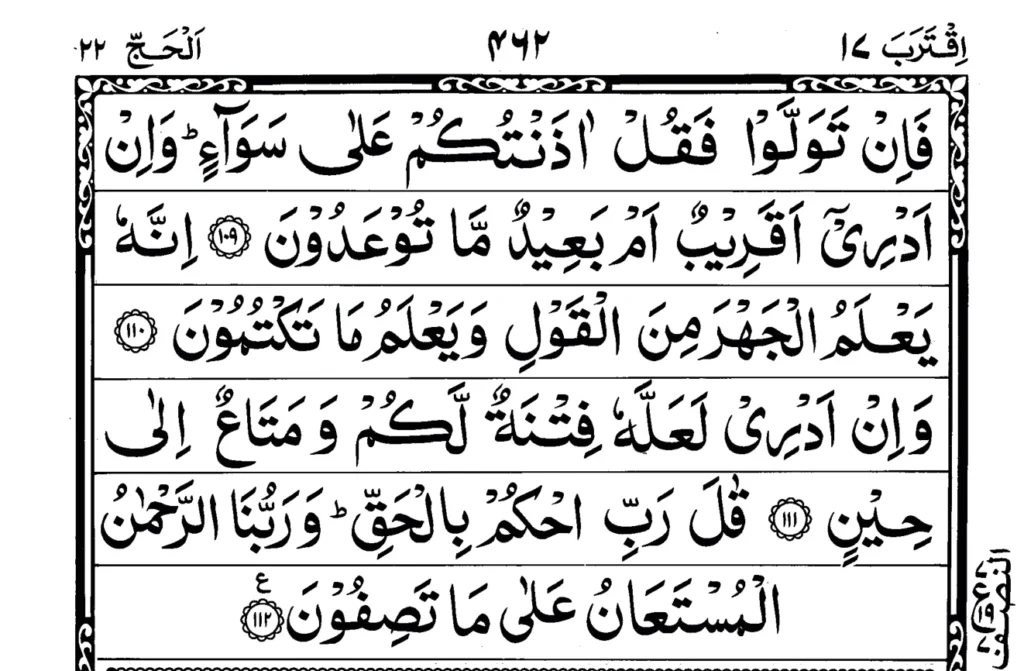 اِقْتَرَبَ ١٧
٤٦٢
اَلْحَـجّ ٢٢
فَاِنْ تَوَلَّوْا فَقُلْ اٰذَنْتُكُمْ عَلٰى سَوَآءٍ ؕ وَاِنْ
اَدْرِىْۤ اَقَرِيْبٌ اَمْ بَعِيْدٌ مَّا تُوْعَدُوْنَ ﴿١٠٩﴾ اِنَّهٗ
يَعْلَمُ الْجَهْرَ مِنَ الْقَوْلِ وَيَعْلَمُ مَا تَكْتُمُوْنَ ﴿١١٠﴾
وَاِنْ اَدْرِىْ لَعَلَّهٗ فِتْنَةٌ لَّكُمْ وَمَتَاعٌ اِلٰى
حِيْنٍ ﴿١١١﴾ قٰلَ رَبِّ احْكُمْ بِالْحَقِّ ؕ وَرَبُّنَا الرَّحْمٰنُ
الْمُسْتَعَانُ عَلٰى مَا تَصِفُوْنَ ﴿١١٢﴾ ع